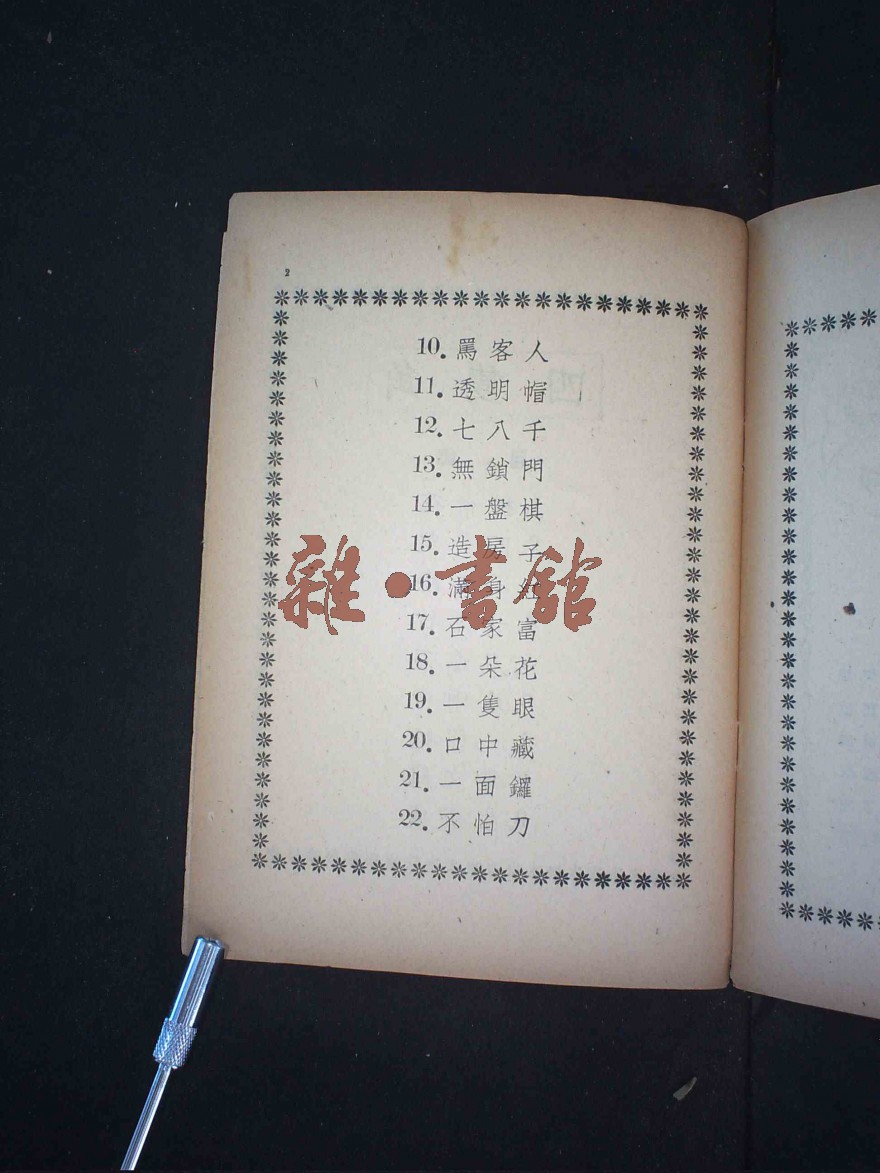 2
10. 罵客人
11. 透明帽
12. 七八千
13. 無鎖門
14. 一盤棋
15. 造房子
16. 滿身紅
17. 石家富
18. 一朵花
19. 一隻眼
20. 口中藏
21. 一面鑼
22. 不怕刀
雜·書館